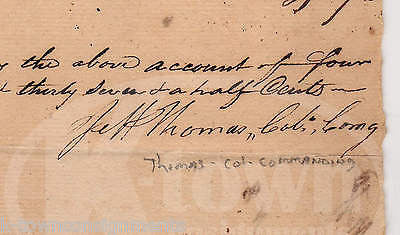 the above account of four
thirty seven & a half Cents
Thomas, Col. Comg
Thomas - Col - COMMANDING